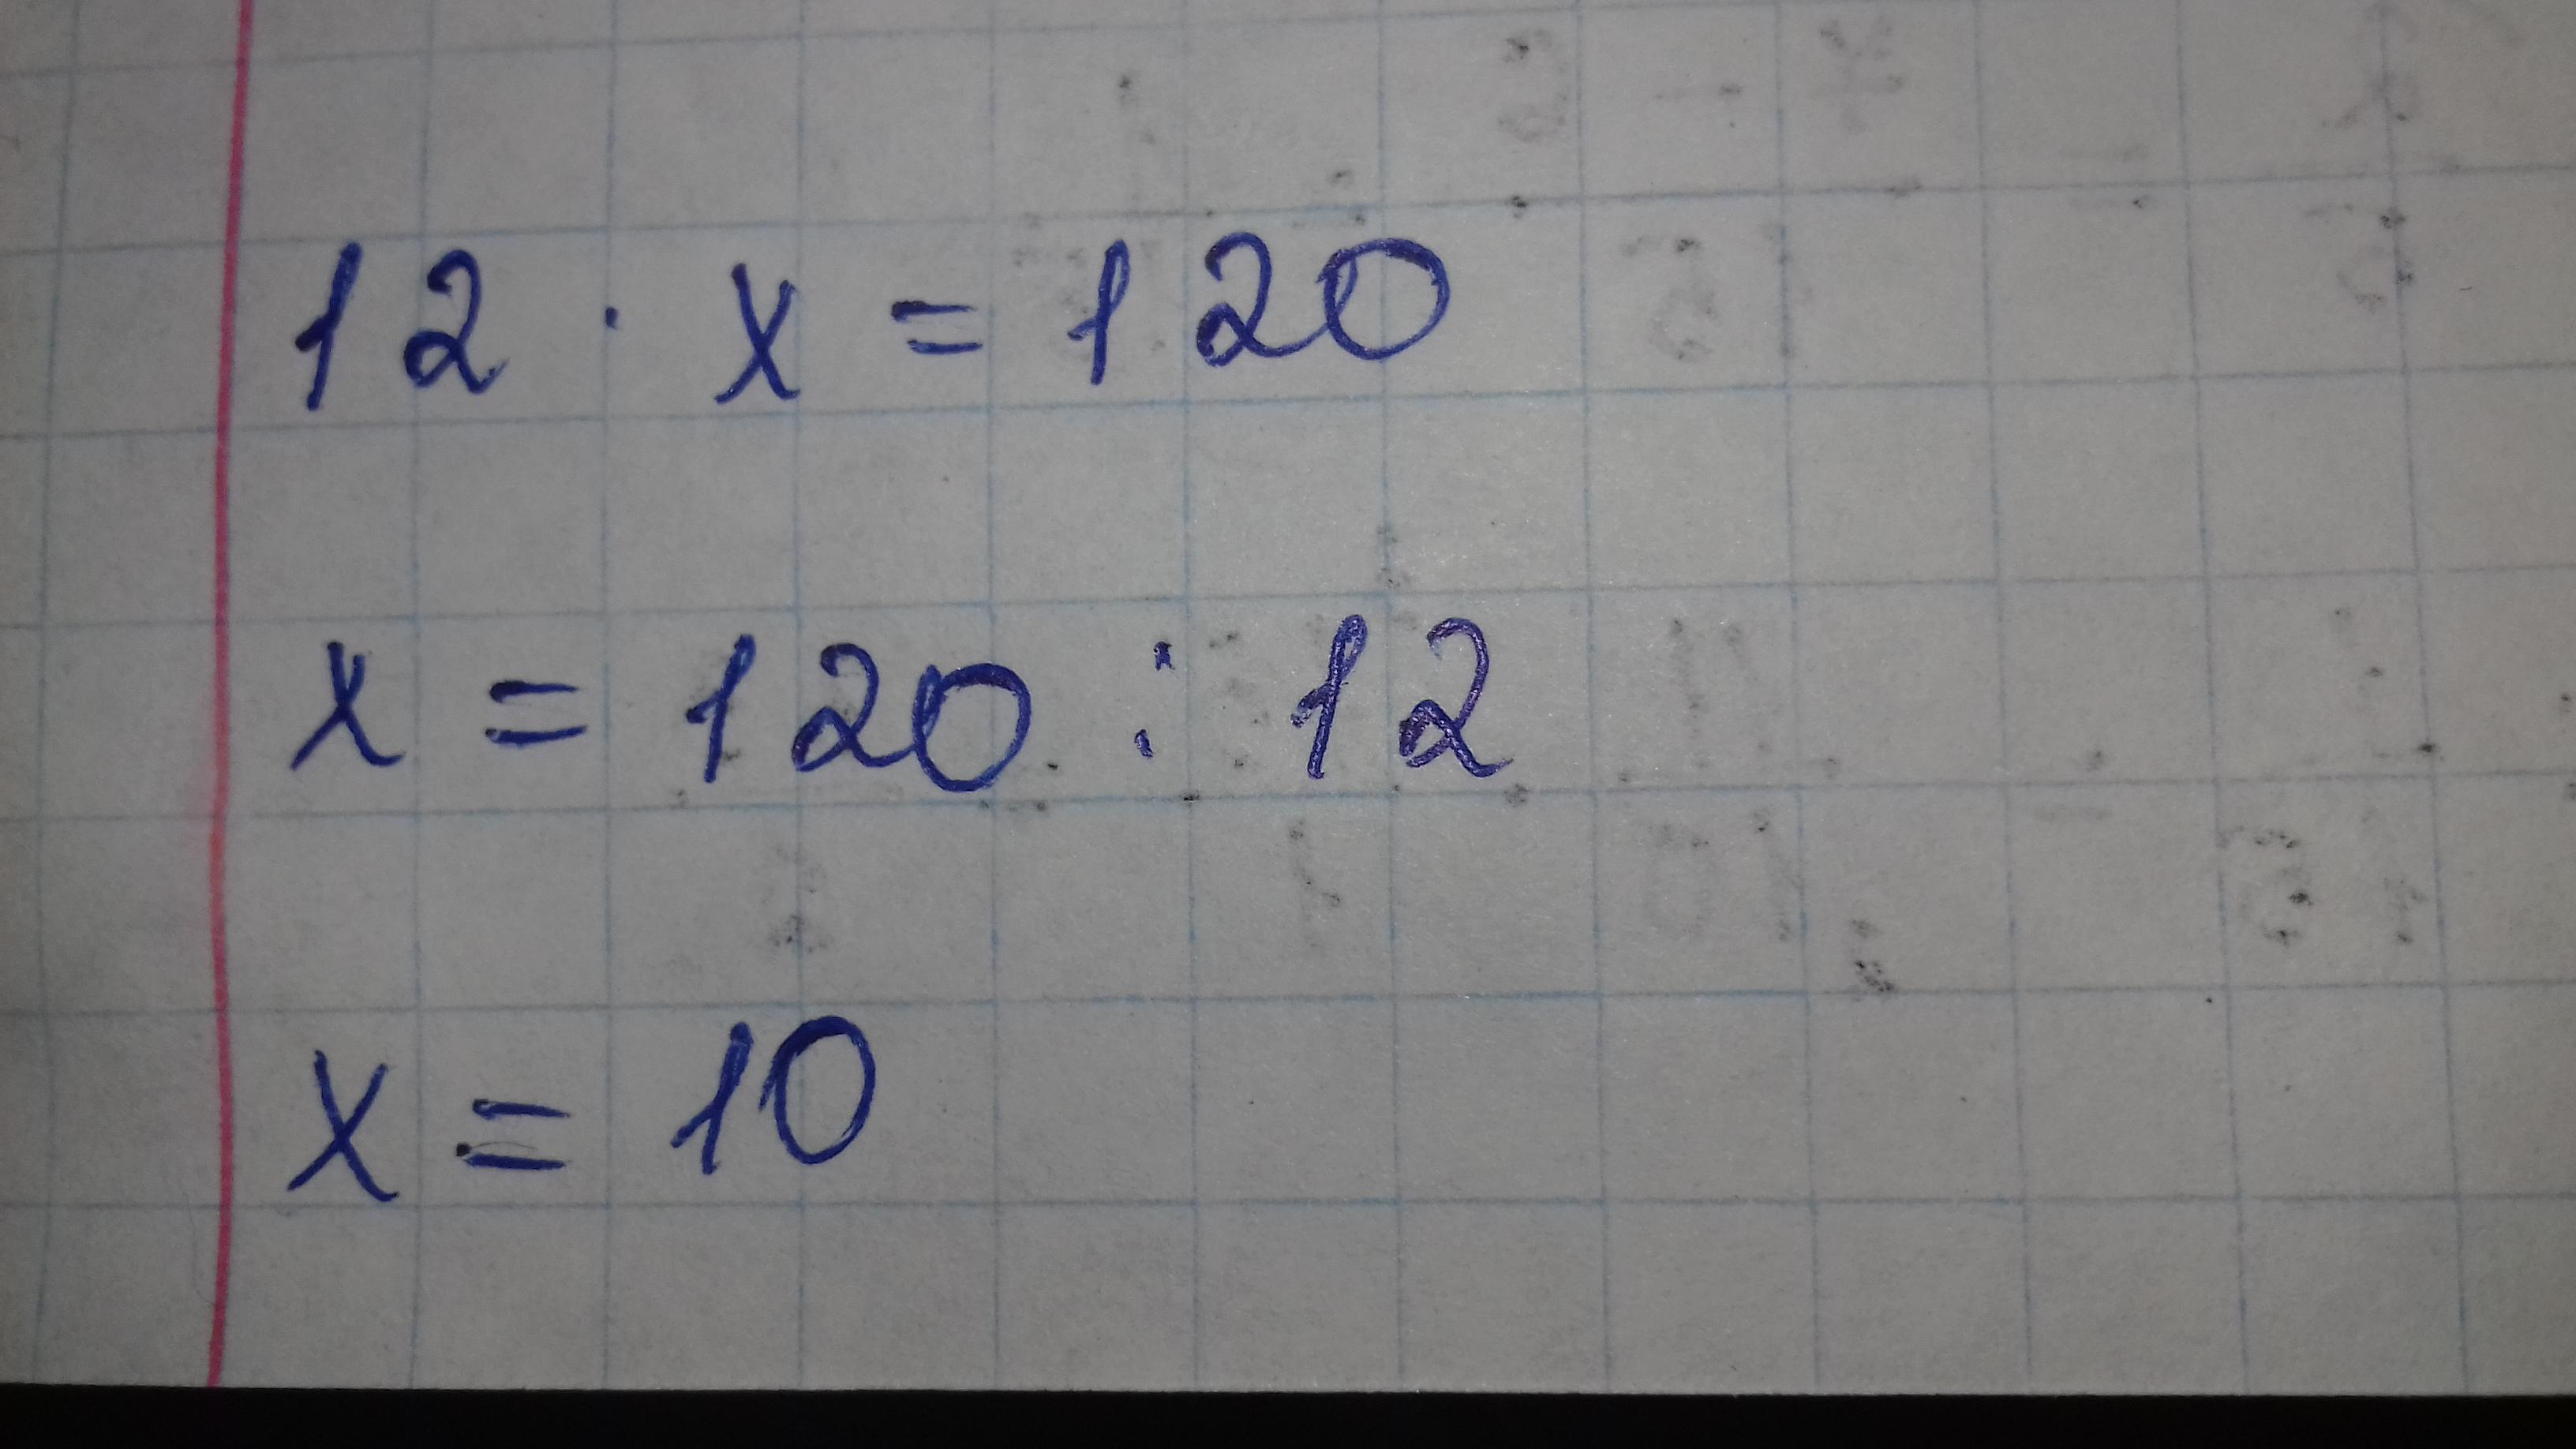 12 · x = 120
x = 120 : 12
x = 10